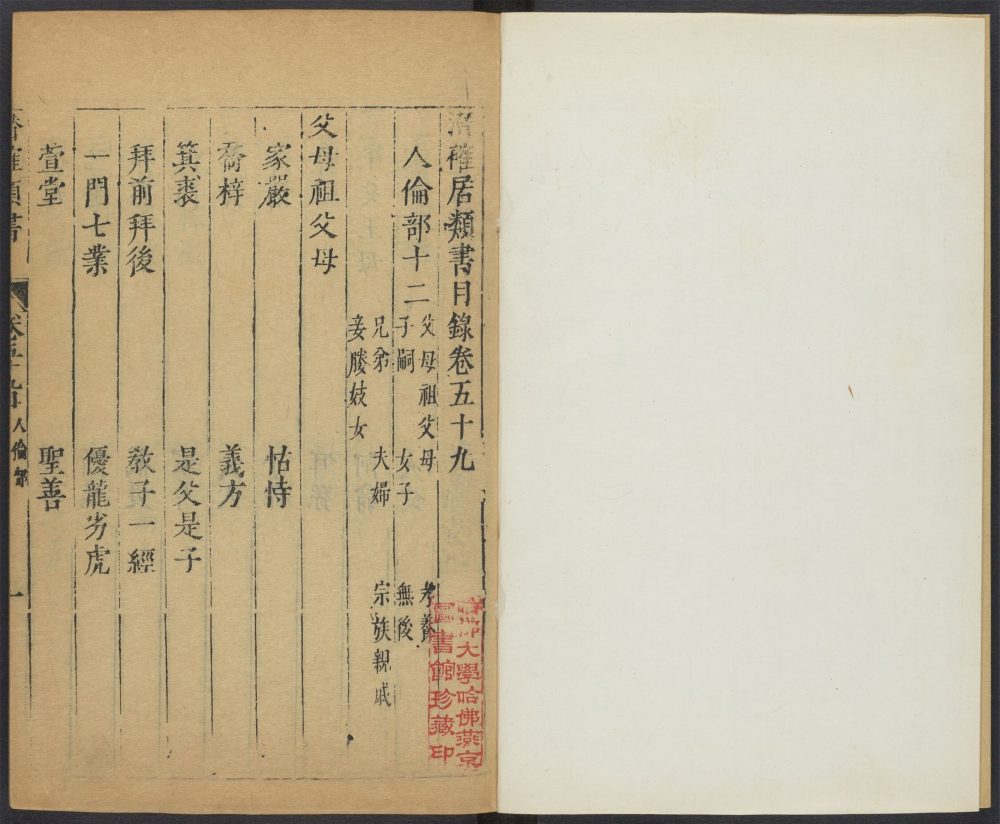 潛確居類書目錄卷五十九
人倫部十二
父母祖父母
老養
子嗣
女子
無後
兄弟
夫婦
宗族親戚
妾媵妓女
父母祖父母
家嚴
怙恃
喬梓
義方
箕裘
是父是子
拜前拜後
教子一經
一門七業
優龍劣虎
萱堂
聖善
潛確類書
卷五十九目
人倫部
一
哈佛大學哈佛燕京
圖書館珍藏印